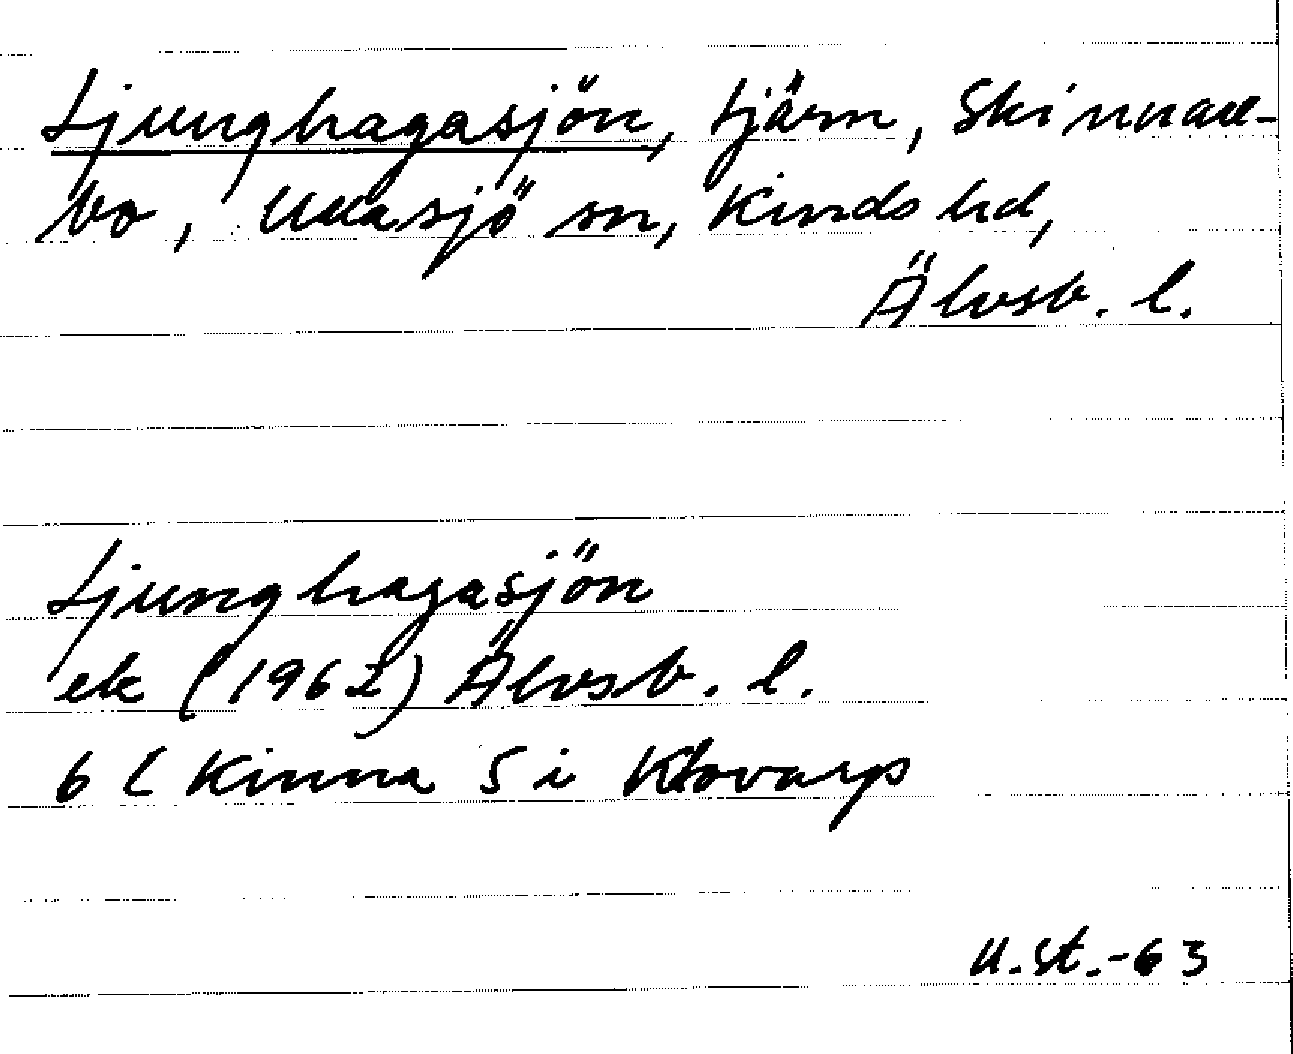 Ljunghagasjön, tjärn, Skinnan-
bo, Ullasjö sn, Kinds hd,
Älvsb. l.
Ljunghagasjön
ek (1962) Älvsb. l.
6 C Kinna S i Klovarp
U.St.-63